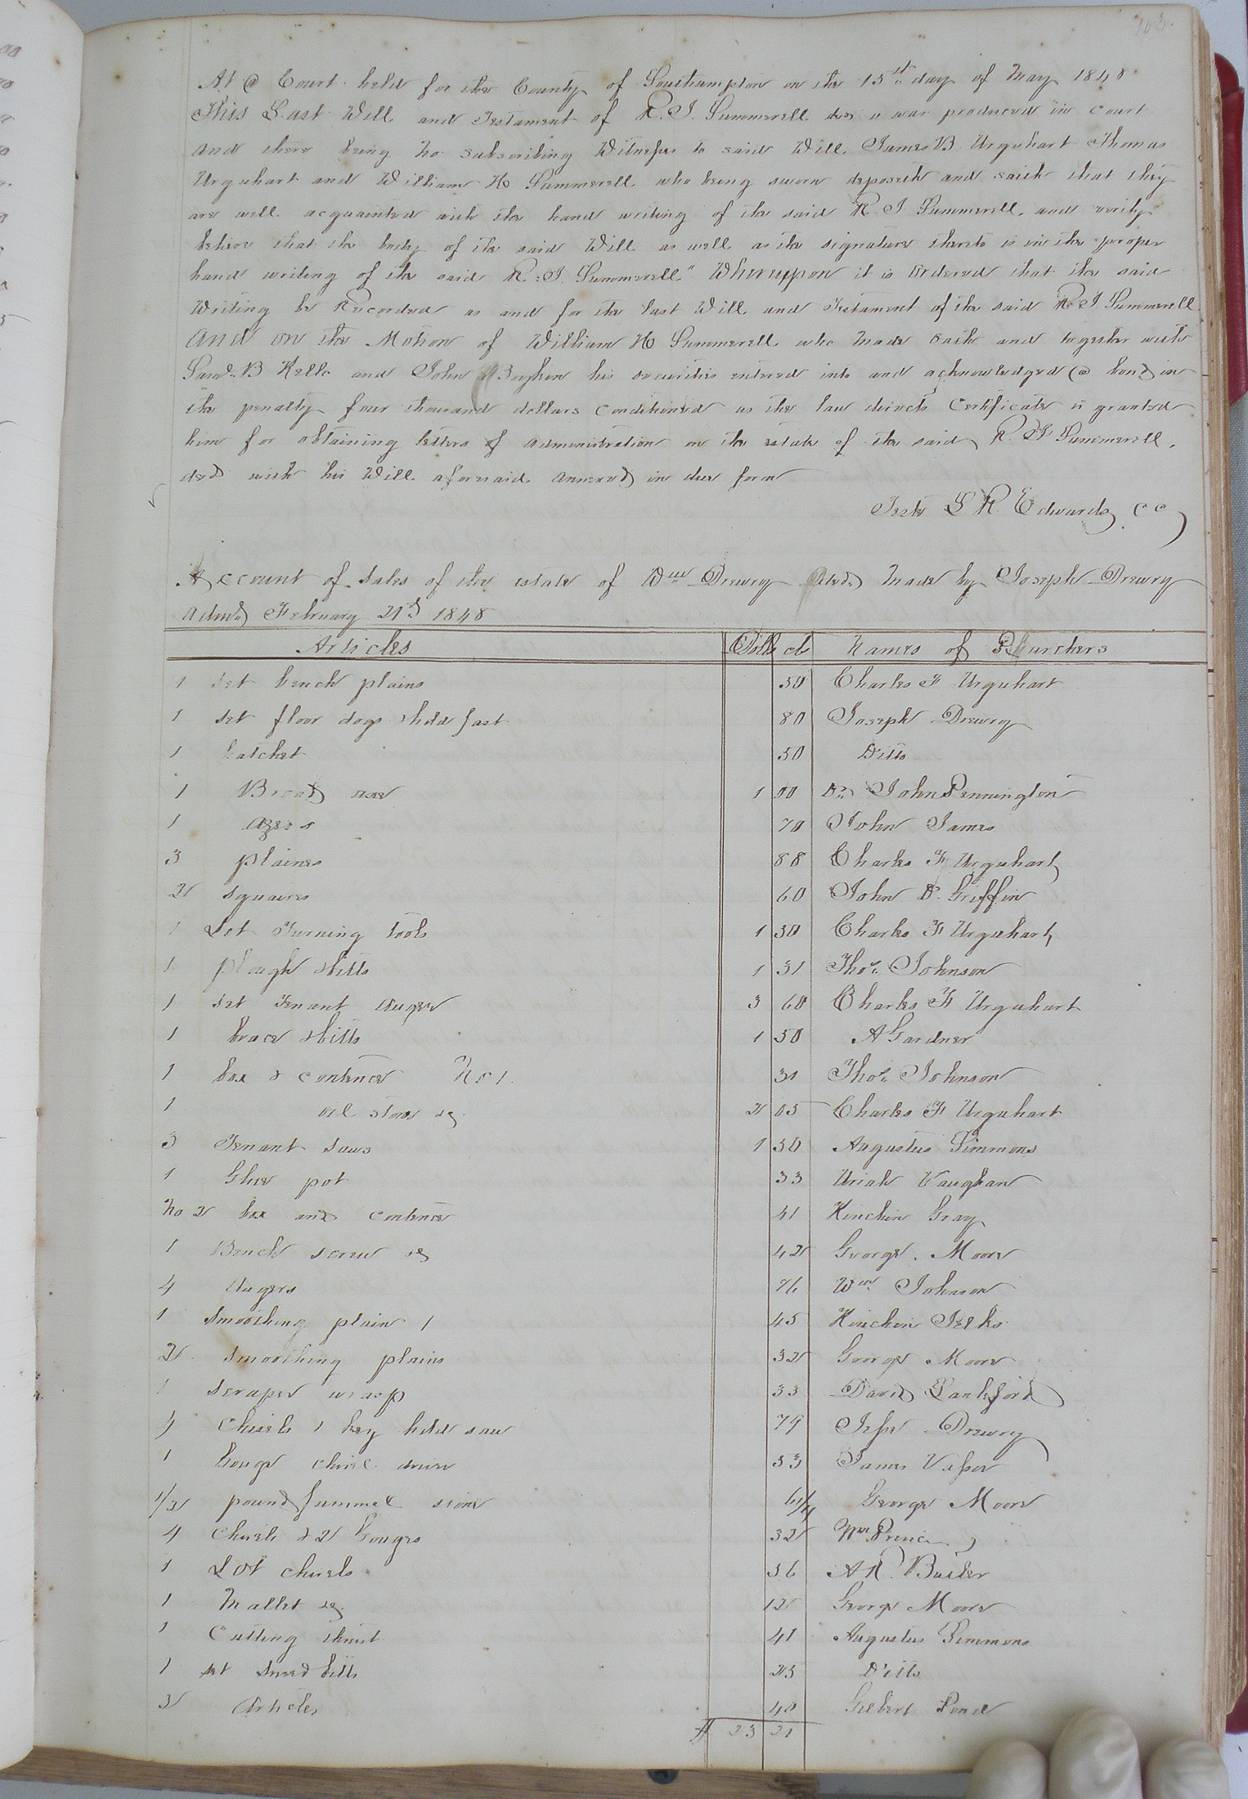 At a Court held for the County of Southampton on the 15th day of May 1848
This Last Will and Testament of R. J. Summerell decd was produced in court
and there being no subscribing Witnesses to said Will James B Urquhart Thomas
Urquhart and William H Summerell who being sworn deposeth and saith that they
are well acquainted with the hand writing of the said R. J Summerell, and verily
believe that the body of the said Will as well as the signature thereto is in the proper
hand writing of the said R. J. Summerell" Whereuppon it is Ordered that the said
Writing be Recorded as and for the last Will and Testament of the said R J Summerell
And on the Motion of William H Summerell who made oath and together with
Saml B Kello and John his securities entered into and acknowledged a bond in
the penalty four thousand dollars conditioned as the law directs Certificate is granted
him for obtaining letters of administration on the estate of the said R. J Summerell.
decd with his Will aforesaid annexed in due form
Teste L R Edwards CC
Account of Sales of the estate of Wm Drewry decd Made by Joseph Drewry
Admr February 21st 1848
Articles Dolls cts Names of Purchers
1 set bench plains 50 Charles F Urquhart
1 set floor dogs & hold fast 80 Joseph Drewry
1 hatchet 50 Ditto
1 Broad axe 1 00 Dr John Pennington
1 70 John James
3 plaines 88 Charles F Urquhart
2 squares 60 John D. Griffin
1 Lot Turning tools 1 50 Charles F Urquhart
1 plough & bitts 1 31 Thos. Johnson
1 set Tenant Auger 3 60 Charles F Urquhart
1 brace & bitts 1 50 A Gardner
1 box & contence No 1. 31 Thos. Johnson
1 oil stone &c 2 05 Charles F Urquhart
3 Tenant Saws 1 50 Augustus Simmons
1 Glue pot 33 Uriah Vaughan
No 2 box and contence 41 Hinchin Gray
1 Bench screw &c 42 George Moore
4 Augers 76 Wm Johnson
1 smoothing plain 1 45 Hinchin Jelks
2 smoothing plains 32 George Moore
1 scraper & rasp 33 David Lankford
4 Chisels 1 key hole saw 79 Jesse Drewry
1 Gouge chisel 53 James Vasser
1/2 pound pummel stone 6 1/4 George Moore
4 Chisels & 2 Gouges 32 Wm Prince
1 Lot chisels 56 A R. Butler
1 Mallet &c 12 George Moore
1 Cutting 41 Augustus Simmons
1 set bitts 25 Ditto
3 Articles 40 Gilbert Pond
$ 23 21